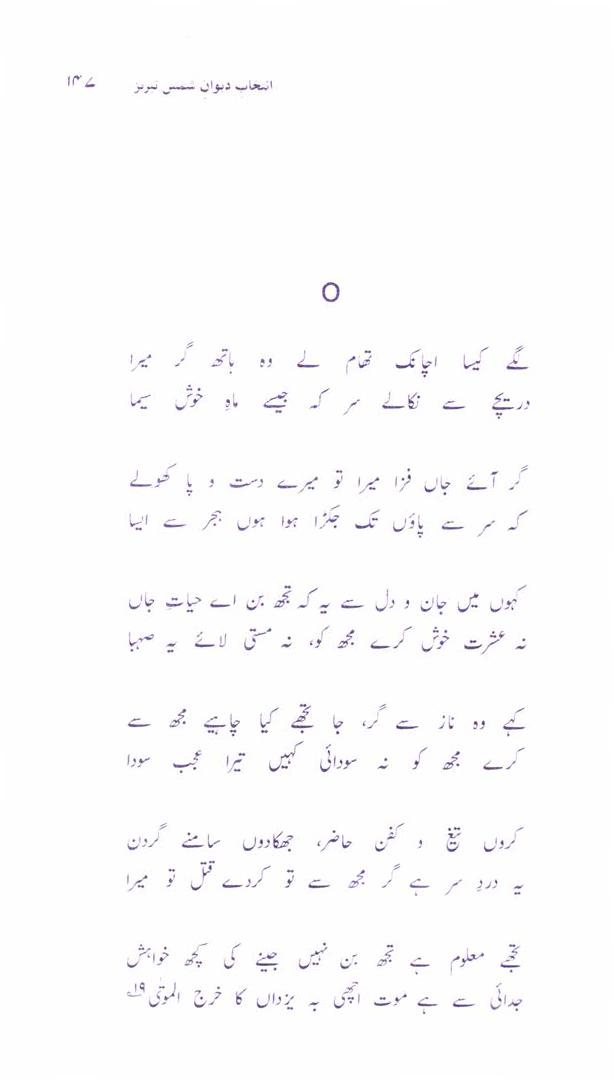 انتخاب دیوانِ شمس تبریز ۱۴۷
لگے کیسا اچانک تھام لے وہ ہاتھ گر میرا
دریچے سے نکالے سر کہ جیسے ماہِ خوش سیما
گر آئے جاں فزا میرا تو میرے دست و پا کھولے
کہ سر سے پاؤں تک جکڑا ہوا ہوں ہجر سے ایسا
کہوں میں جان و دل سے یہ کہ تجھ بن اے حیاتِ جاں
نہ عشرت خوش کرے مجھ کو، نہ مستی لائے یہ صہبا
کہے وہ ناز سے گر، جا تجھے کیا چاہیے مجھ سے
کرے مجھ کو نہ سودائی کہیں تیرا عجب سودا
کروں تیغ و کفن حاضر، جھکادوں سامنے گردن
یہ دردِ سر ہے گر مجھ سے تو کردے قتل تو میرا
تجھے معلوم ہے تجھ بن نہیں جینے کی کچھ خواہش
جدائی سے ہے موت اچھی بہ یزداں کا خرج الموتٰی۱۹؎